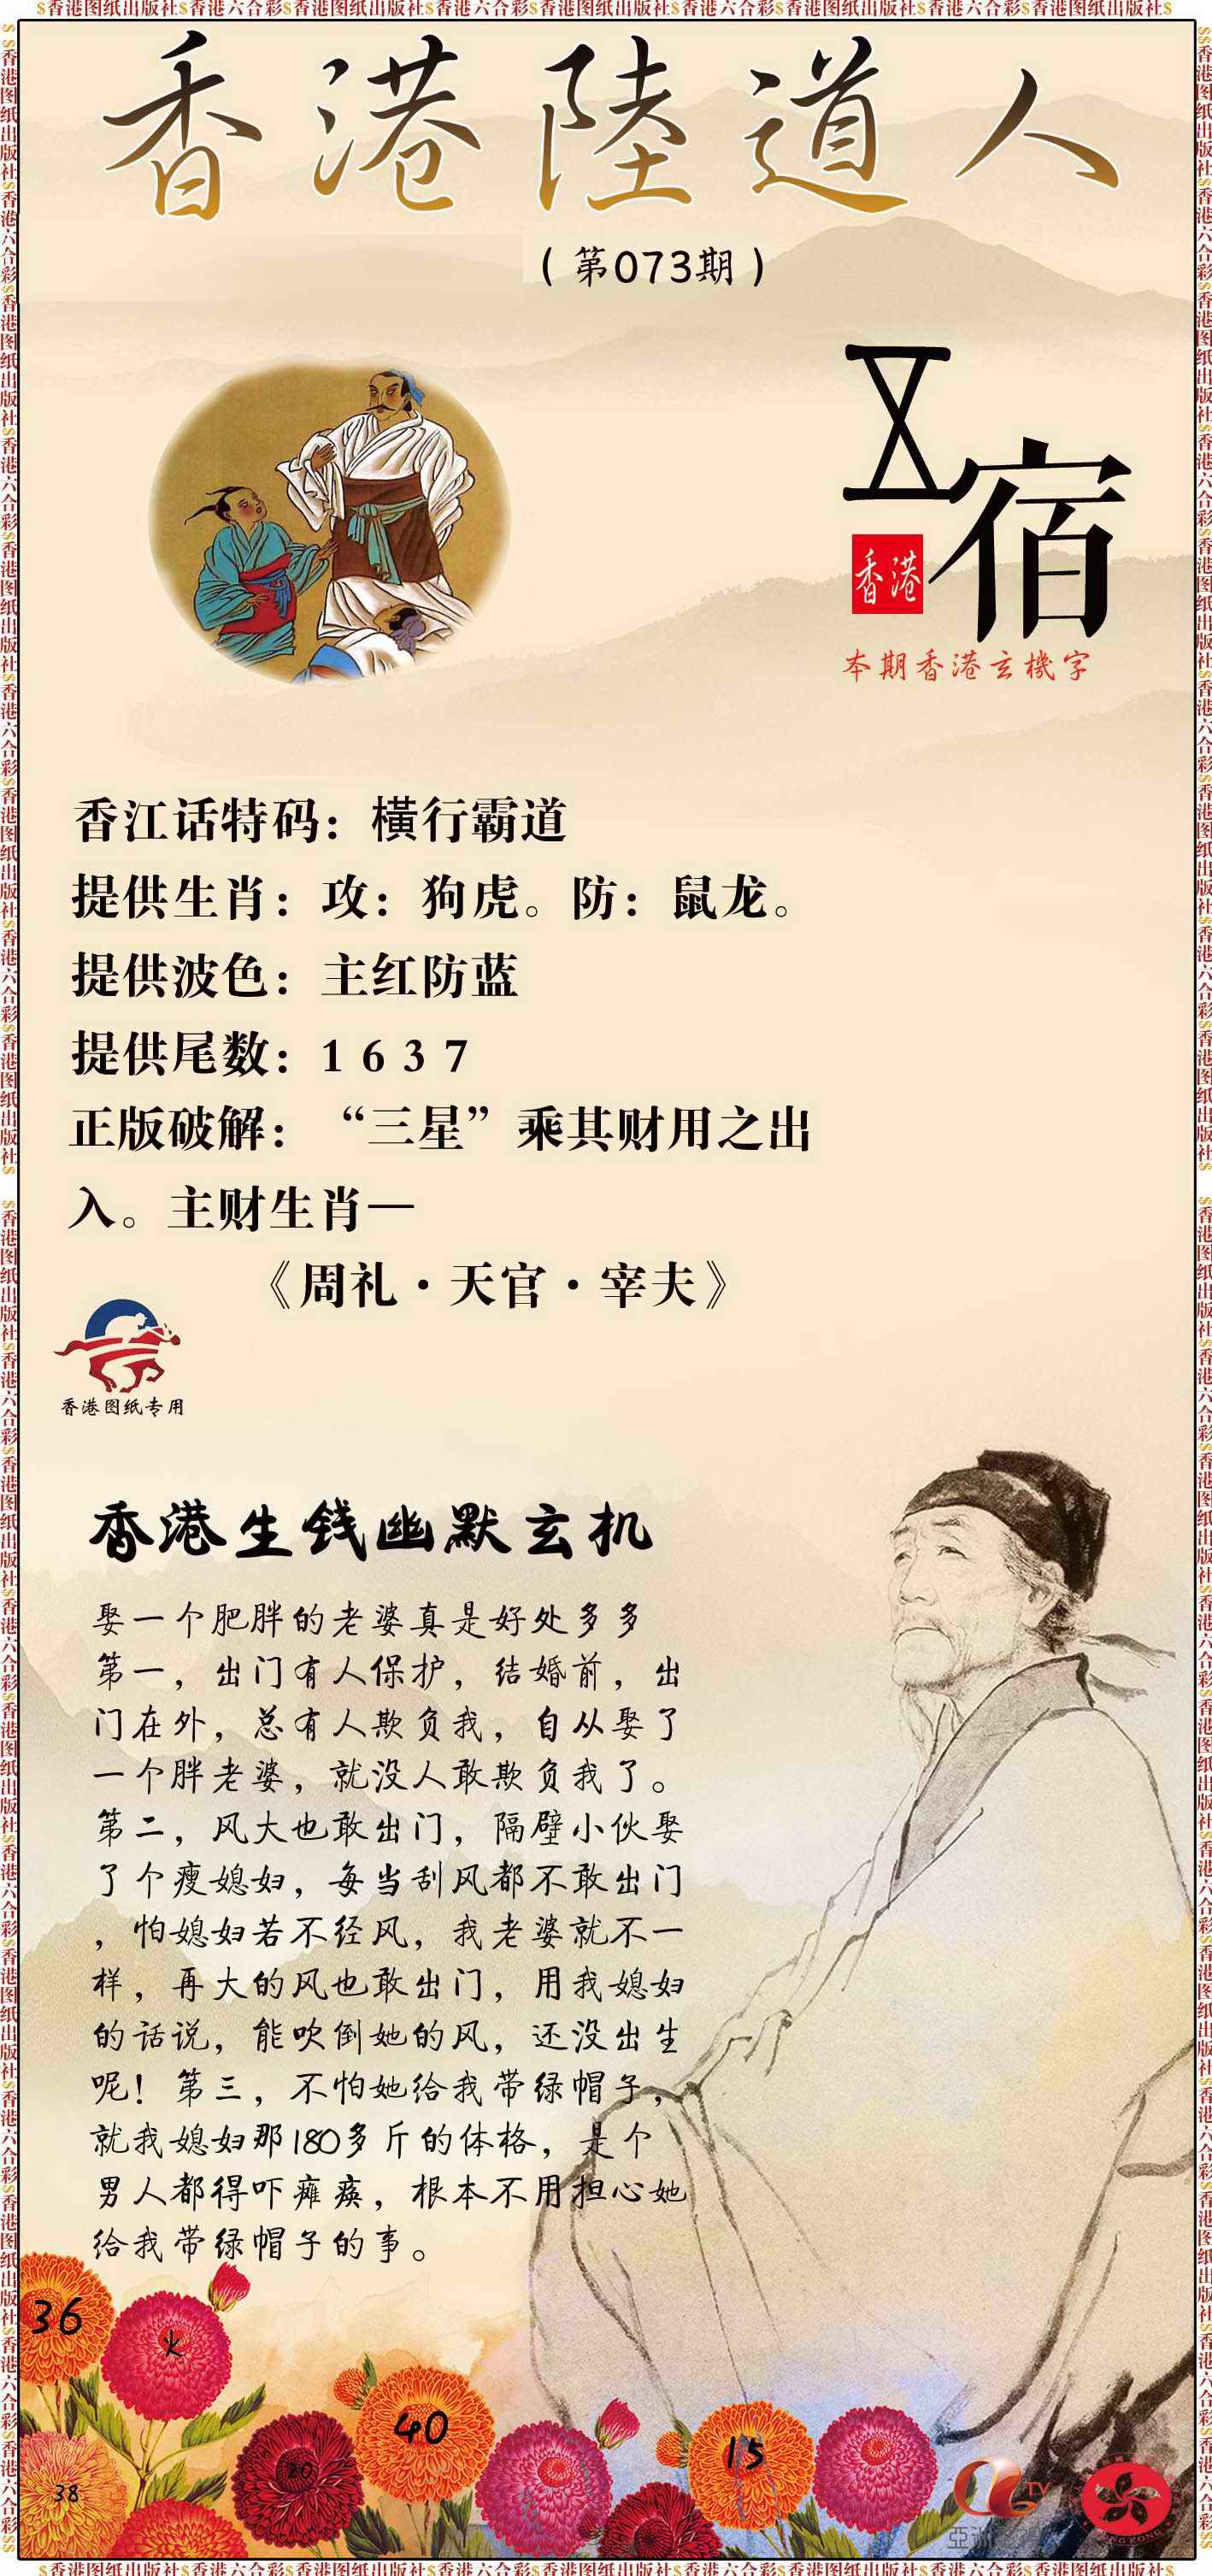 $香港图纸出版社$香港六合彩$香港图纸出版社$香港六合彩$香港图纸出版社$香港六合彩$香港图纸出版社$香港六合彩$香港图纸出版社$
香港陸道人
（第073期）
宿
香港
本期香港玄機字
香江话特码：横行霸道
提供生肖：攻：狗虎。防：鼠龙。
提供波色：主红防蓝
提供尾数：1 6 3 7
正版破解：“三星”乘其财用之出
入。主财生肖—
《周礼·天官·宰夫》
香港图纸专用
香港生钱幽默玄机
娶一个肥胖的老婆真是好处多多
第一，出门有人保护，结婚前，出
门在外，总有人欺负我，自从娶了
一个胖老婆，就没人敢欺负我了。
第二，风大也敢出门，隔壁小伙娶
了个瘦媳妇，每当刮风都不敢出门
，怕媳妇若不经风，我老婆就不一
样，再大的风也敢出门，用我媳妇
的话说，能吹倒她的风，还没出生
呢！第三，不怕她给我带绿帽子，
就我媳妇那180多斤的体格，是个
男人都得吓瘫痪，根本不用担心她
给我带绿帽子的事。
36
火
40
15
20
38
TV
亞洲
$香港图纸出版社$香港六合彩$香港图纸出版社$香港六合彩$香港图纸出版社$香港六合彩$香港图纸出版社$香港六合彩$香港图纸出版社$